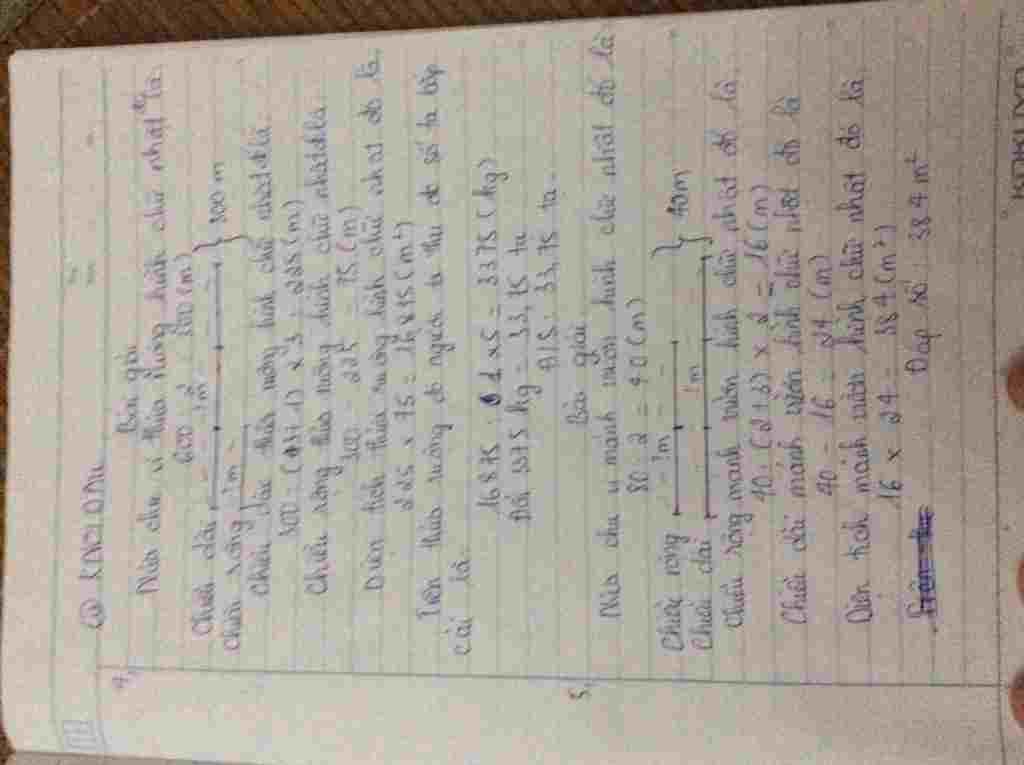 4,
Bài giải
Nửa chu vi thửa ruộng hình chữ nhật đó là.
600 : 2 = 300 (m)
Chiều dài ?m } 300 m
Chiều rộng ?m
Chiều dài thửa ruộng hình chữ nhật đó là.
300 : (3+1) x 3 = 225 (m)
Chiều rộng thửa ruộng hình chữ nhật đó là.
300 - 225 = 75 (m)
Diện tích thửa ruộng hình chữ nhật đó là.
225 x 75 = 16 875 (m²)
Trên thửa ruộng đó người ta thu đc số tạ bắp
cải là.
16875 : 5 = 3375 (kg)
Đổi 3375 kg = 33,75 tạ
Đ/S: 33,75 tạ.
5,
Bài giải
Nửa chu vi mảnh vườn hình chữ nhật đó là
80 : 2 = 40 (m)
Chiều rộng ?m } 40m
Chiều dài ?m
Chiều rộng mảnh vườn hình chữ nhật đó là.
40 : (2+3) x 2 = 16 (m)
Chiều dài mảnh vườn hình chữ nhật đó là
40 - 16 = 24 (m)
Diện tích mảnh vườn hình chữ nhật đó là
16 x 24 = 384 (m²)
Đáp số : 384 m²